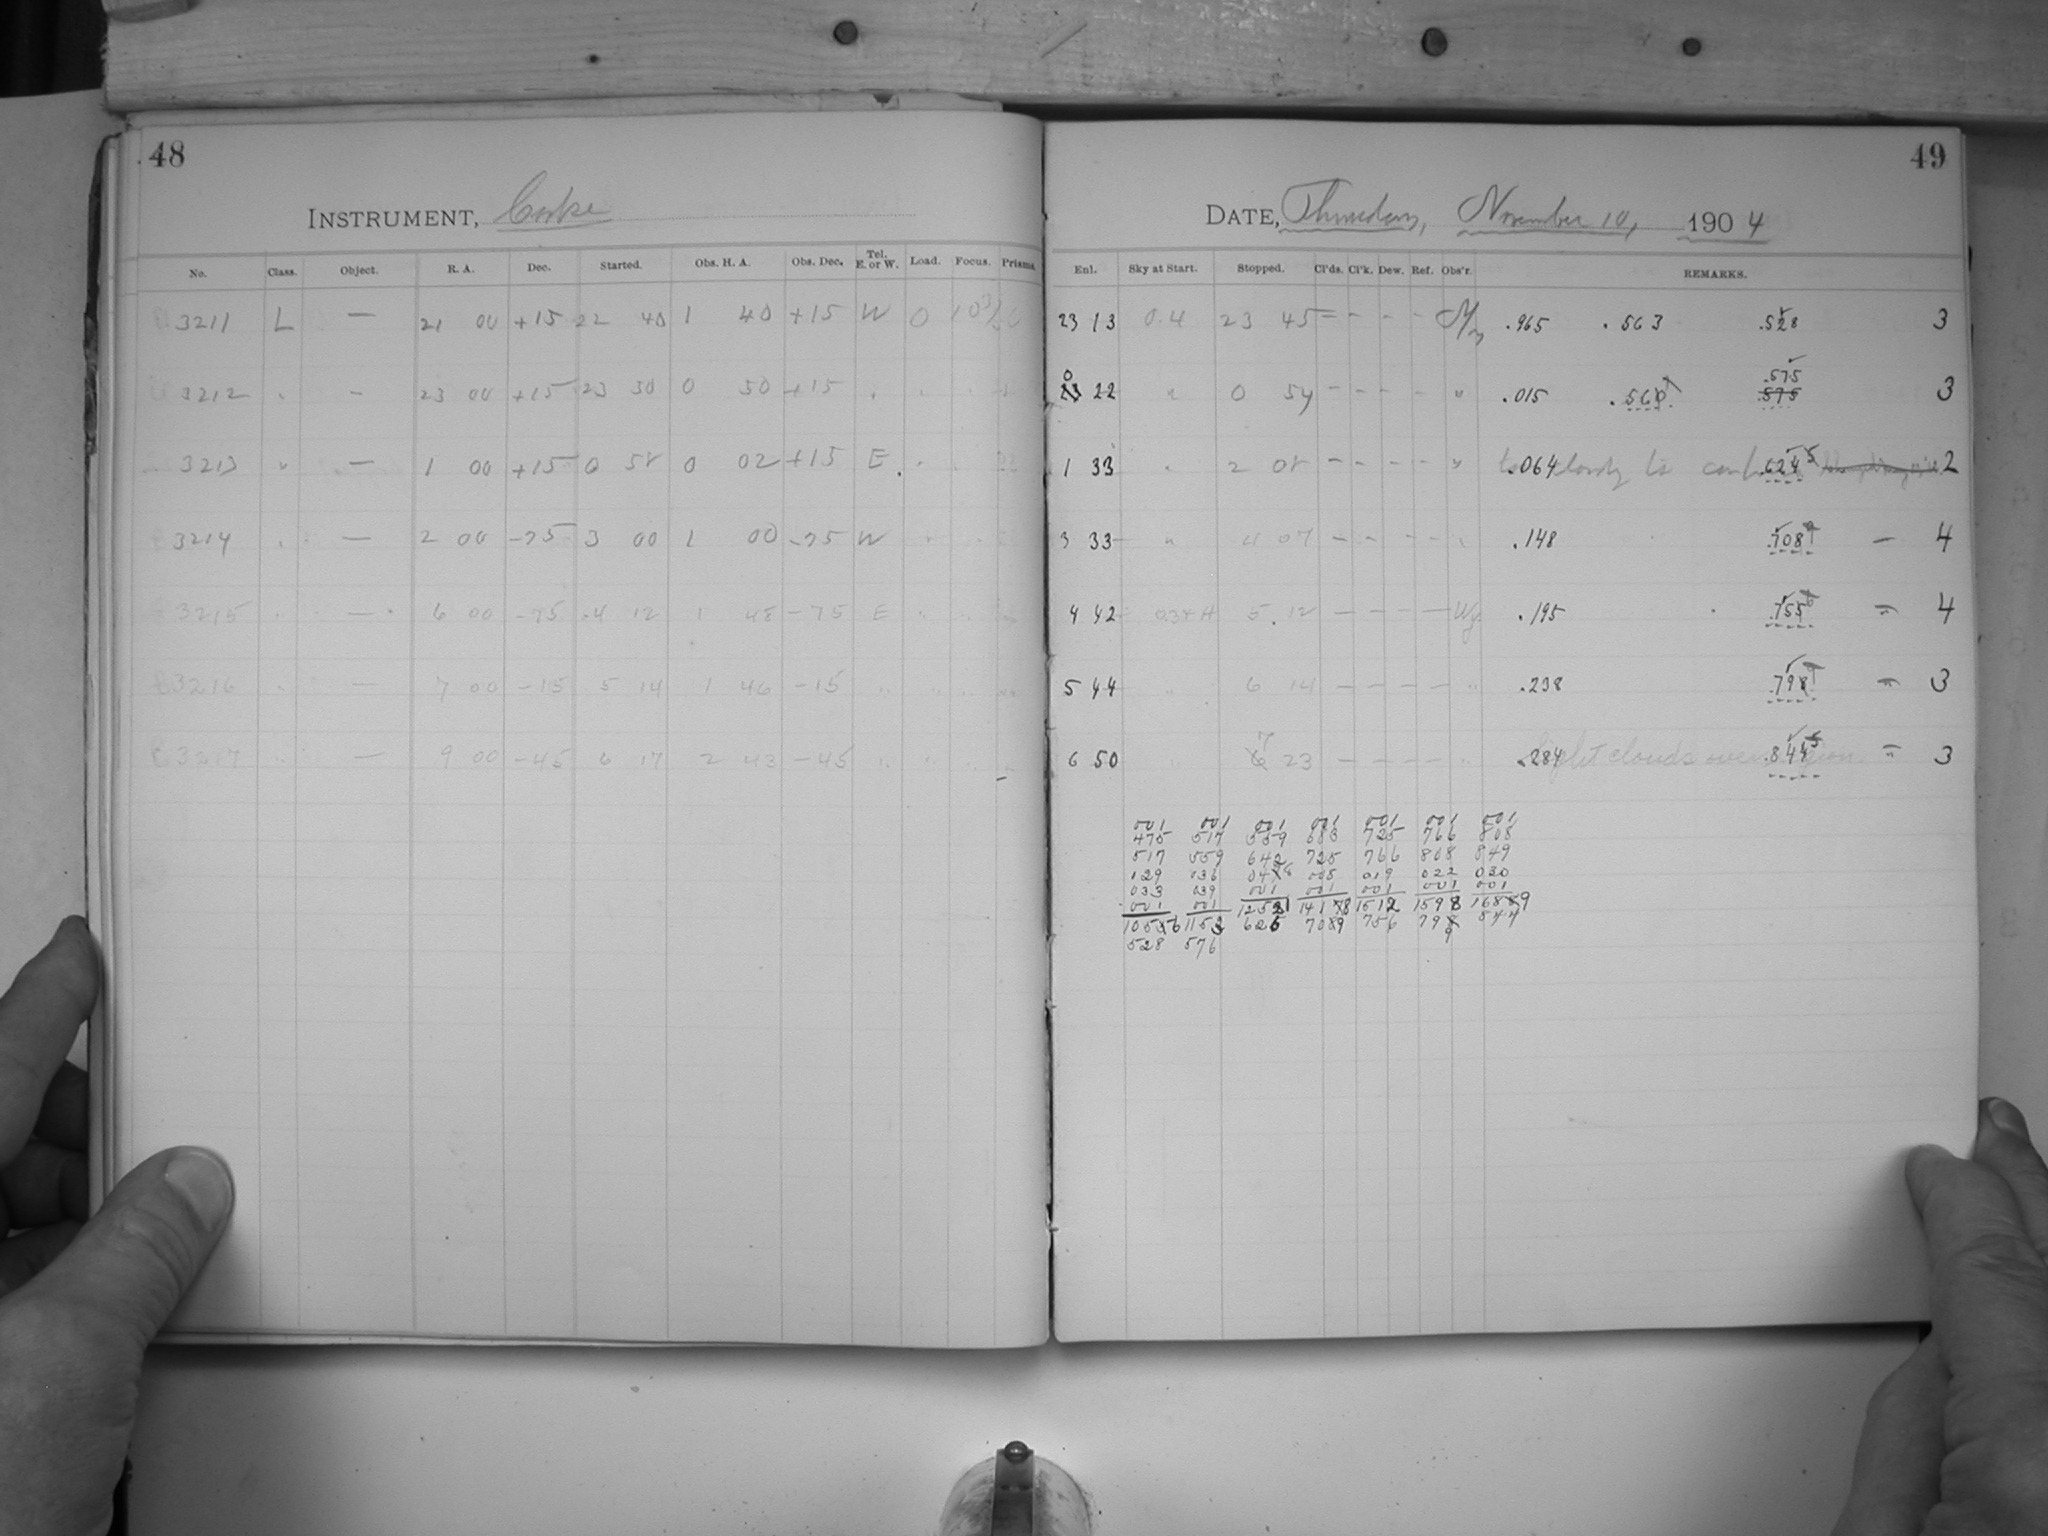 48
INSTRUMENT, Cooke
No. Class. Object. R. A. Dec. Started. Obs. H. A. Obs. Dec. Tel. E. or W. Load. Focus. Prisms.
3211 L — 21 00 +15 22 40 1 40 +15 W 0
3212 " — 23 00 +15 23 50 0 50 +15
3213 " — 1 00 +15 0 58 0 02 +15 E.
3214 " — 2 00 -75 3 00 1 00 -75 W
3215 " — 6 00 -75 4 12 1 48 -75 E
3216 " — 7 00 -15 5 14 1 46 -15 "
3217 " — 9 00 -45 6 17 2 43 -45 "
49
DATE, Thursday, November 10, 1904
Enl. Sky at Start. Stopped. Cl'ds. Cl'k. Dew. Ref. Obs'r. REMARKS.
23 13 0.4 23 45 – – – – .965 .563 .528 3
0 22 " 0 54 – – – – " .015 .560 .575 575 3
1 33 " 2 08 – – – – " .064 cloudy to 2
3 33 " 4 07 – – – – " .148 .708 – 4
4 42 5 12 – – – – .195 .755 " 4
5 44 " 6 14 – – – – " .238 .798 " 3
6 50 " 7 23 – – – – " .284 light clouds over 3
001 001 001 001 001 001 001
475 517 559 683 725 766 808
517 559 642 725 766 808 849
129 036 005 019 022 030
033 039 001 001 001 001 001
001 001 1512 1598
756
528 576